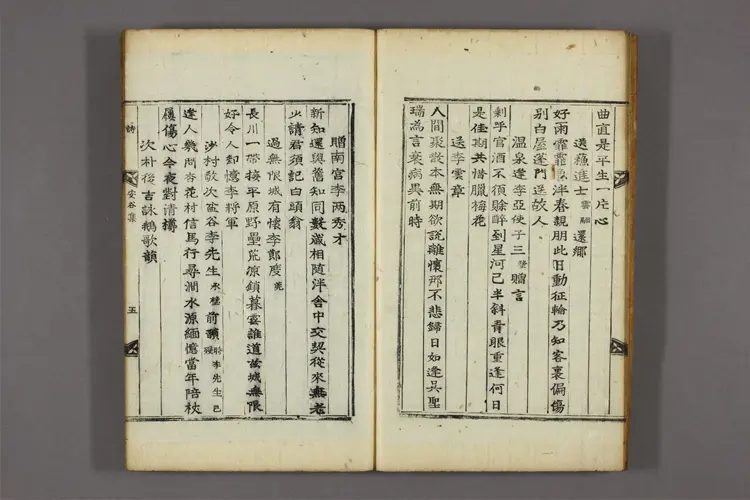 曲直是平生一片心
送進士還鄉
好雨霏霏泮春親朋此日動征輪乃知客裏偏傷
別白屋蓬門送故人
溫泉逢李亞使子三贈言
剩乎官酒不須賒醉到星河已半斜青眼重逢何日
是佳期共惜臘梅花
送李雲章
人間聚散本無期欲說離懷那不悲歸日如逢吳聖
瑞為言衰病異前時
贈南宮李兩秀才
新知還與舊知同數歲相隨泮舍中交契從來無老
少請君須記白頭翁
過無限城有懷李鄭度
長川一帶接平原野壘荒涼鎖暮雲誰道古城無限
好令人却憶李將軍
沙村敬次盆谷李先生前韻時李先生已歿
逢人幾問杏花村信馬行尋澗水源緬憶當年陪杖
屨傷心今夜對清樽
次朴後吉詠鵝歌韻
詩
安谷集
五